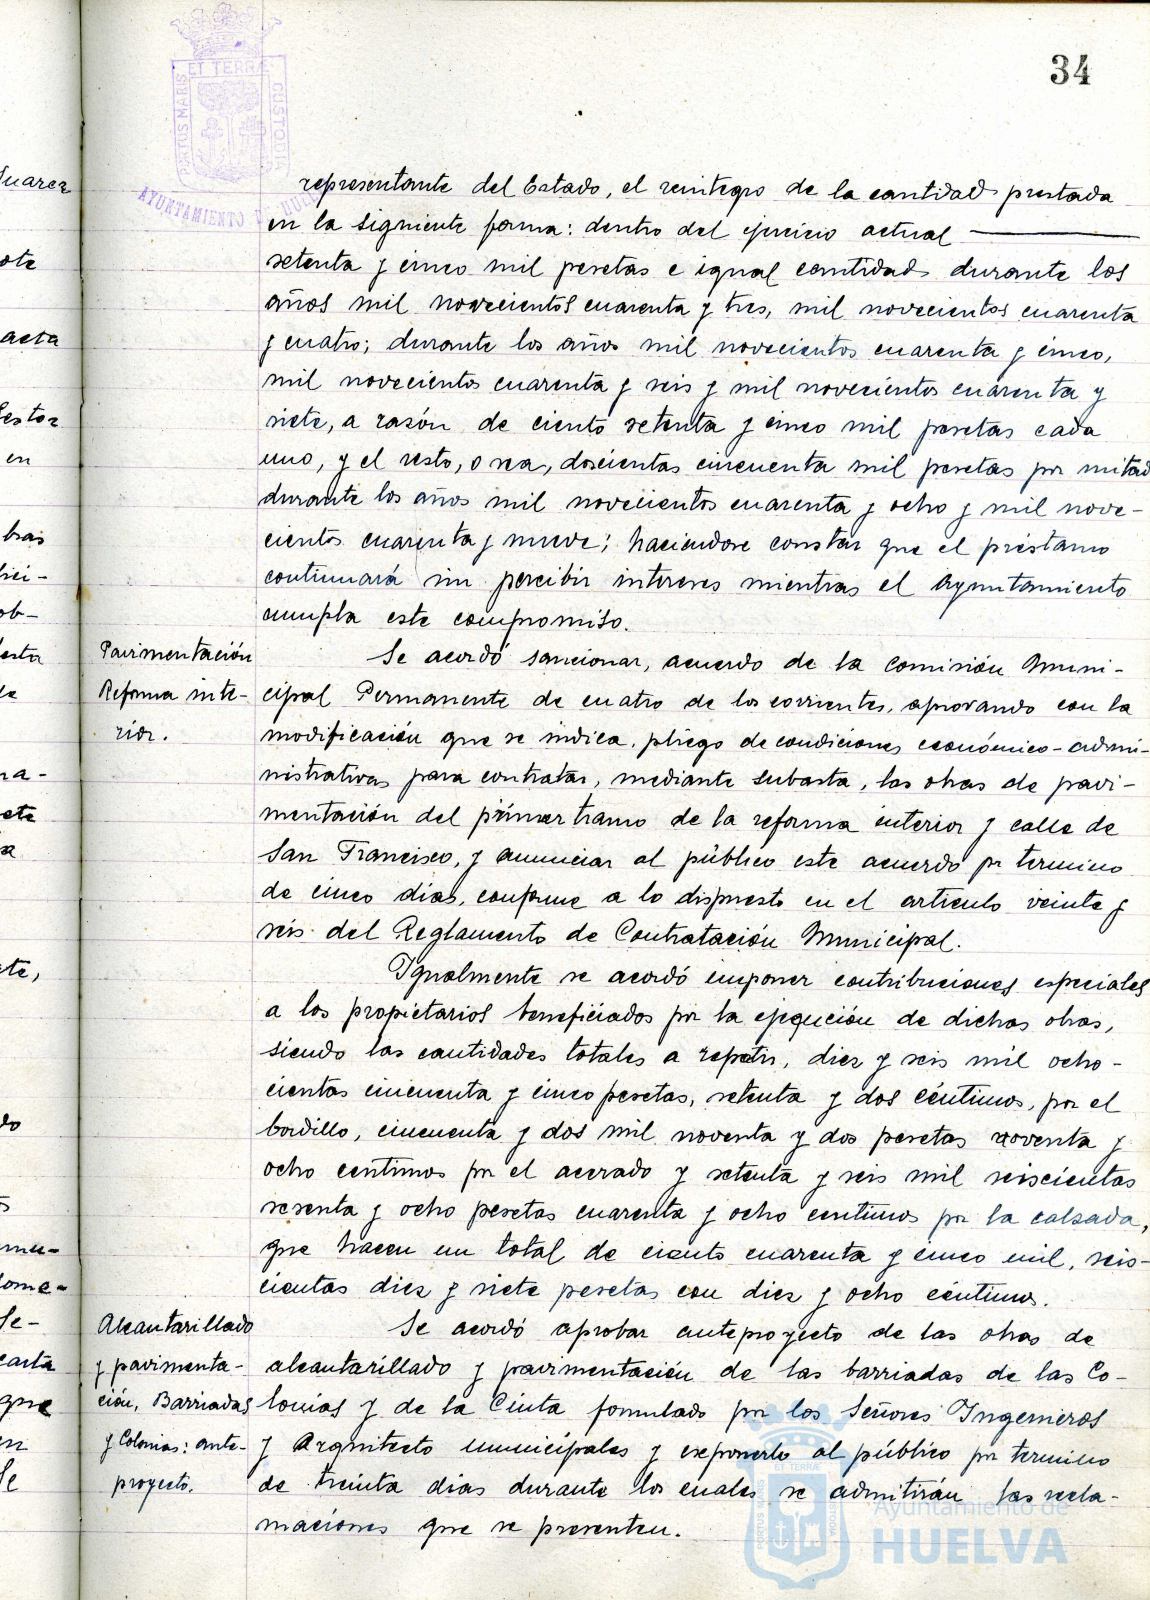 34
PORTUS MARIS ET TERRAE CUSTODIA
AYUNTAMIENTO DE HUELVA
representante del Estado, el reintegro de la cantidad prestada
en la siguiente forma: dentro del ejercicio actual
setenta y cinco mil pesetas e igual cantidad durante los
años mil novecientos cuarenta y tres, mil novecientos cuarenta
y cuatro; durante los años mil novecientos cuarenta y cinco,
mil novecientos cuarenta y seis y mil novecientos cuarenta y
siete, a razón de ciento setenta y cinco mil pesetas cada
uno, y el resto, o sea, doscientas cincuenta mil pesetas por mitad
durante los años mil novecientos cuarenta y ocho y mil nove-
cientos cuarenta y nueve; haciendose constar que el préstamo
continuará sin percibir intereses mientras el Ayuntamiento
cumpla este compromiso.
Pavimentación
Reforma inte-
rior.
Se acordó sancionar, acuerdo de la Comisión Muni-
cipal Permanente de cuatro de los corrientes, aprovando con la
modificación que se indica, pliego de condiciones económico-admi-
nistrativas para contratar, mediante subasta, las obras de pavi-
mentación del primer tramo de la reforma interior y calle de
San Francisco, y anunciar al público este acuerdo por termino
de cinco días, conforme a lo dispuesto en el articulo veinte y
seis del Reglamento de Contratación Municipal.
Igualmente se acordó imponer contribuciones especiales
a los propietarios beneficiados por la ejecución de dichas obras,
siendo las cantidades totales a repetir, diez y seis mil ocho-
cientas cincuenta y cinco pesetas, setenta y dos céntimos, por el
bordillo, cincuenta y dos mil noventa y dos pesetas noventa y
ocho centimos por el acerado y setenta y seis mil seiscientas
sesenta y ocho pesetas cuarenta y ocho centimos por la calzada,
que hacen un total de ciento cuarenta y cinco mil, seis-
cientas diez y siete pesetas con diez y ocho céntimos.
Alcantarillado
y pavimenta-
ción, Barriadas
y Colonias: ante-
proyecto.
Se acordó aprobar anteproyecto de las obras de
alcantarillado y pavimentación de las barriadas de las Co-
lonias y de la Cinta fomulado por los Señores Ingenieros
y Arquitecto municipales y exponerlo al público por termino
de treinta días durante los cuales se admitirán las recla-
maciones que se presenten.
Ayuntamiento de
HUELVA